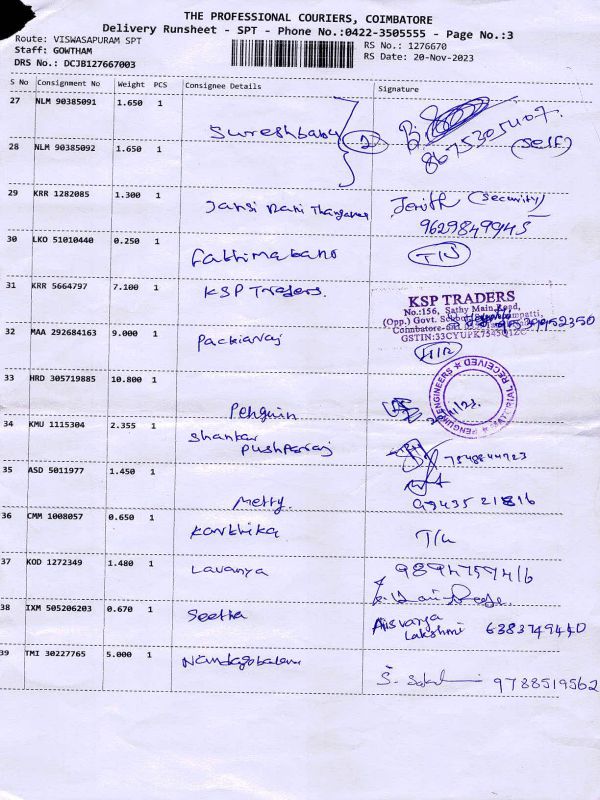 THE PROFESSIONAL COURIERS, COIMBATORE
Delivery Runsheet - SPT - Phone No.:0422-3505555 - Page No.:3
Route: VISWASAPURAM SPT
Staff: GOWTHAM
RS No.: 1276670
DRS No.: DCJB127667003
RS Date: 20-Nov-2023
S No Consignment No Weight PCS Consignee Details Signature
27 NLM 90385091 1.650 1
Sureshbabu 2 8675305407. (self)
28 NLM 90385092 1.650 1
29 KRR 1282085 1.300 1 Jansi Rani Jerith (security)
9629849945
30 LKO 51010440 0.250 1 Fathimabano
31 KRR 5664797 7.100 1 KSP Traders.
KSP TRADERS
No:156, Sathy Main Road,
(Opp.) Govt.
Coimbatore-641
GSTIN:33CYUPK7545Q1ZC
32 MAA 292684163 9.000 1 Packiaraj
33 HRD 305719885 10.800 1 Penguin
PENGUIN ENGINEERS ★ MATERIAL RECEIVED ★
34 KMU 1115304 2.355 1 Shankar
Pushparaj 7548844723
35 ASD 5011977 1.450 1 Metty.
9943521816
36 CMM 1008057 0.650 1 Karthika
37 KOD 1272349 1.480 1 Lavanya 9894759416
38 IXM 505206203 0.670 1 Seetha Aisvarya
Lakshmi 6383749440
39 TMI 30227765 5.000 1 Nandagobalan
9788519562